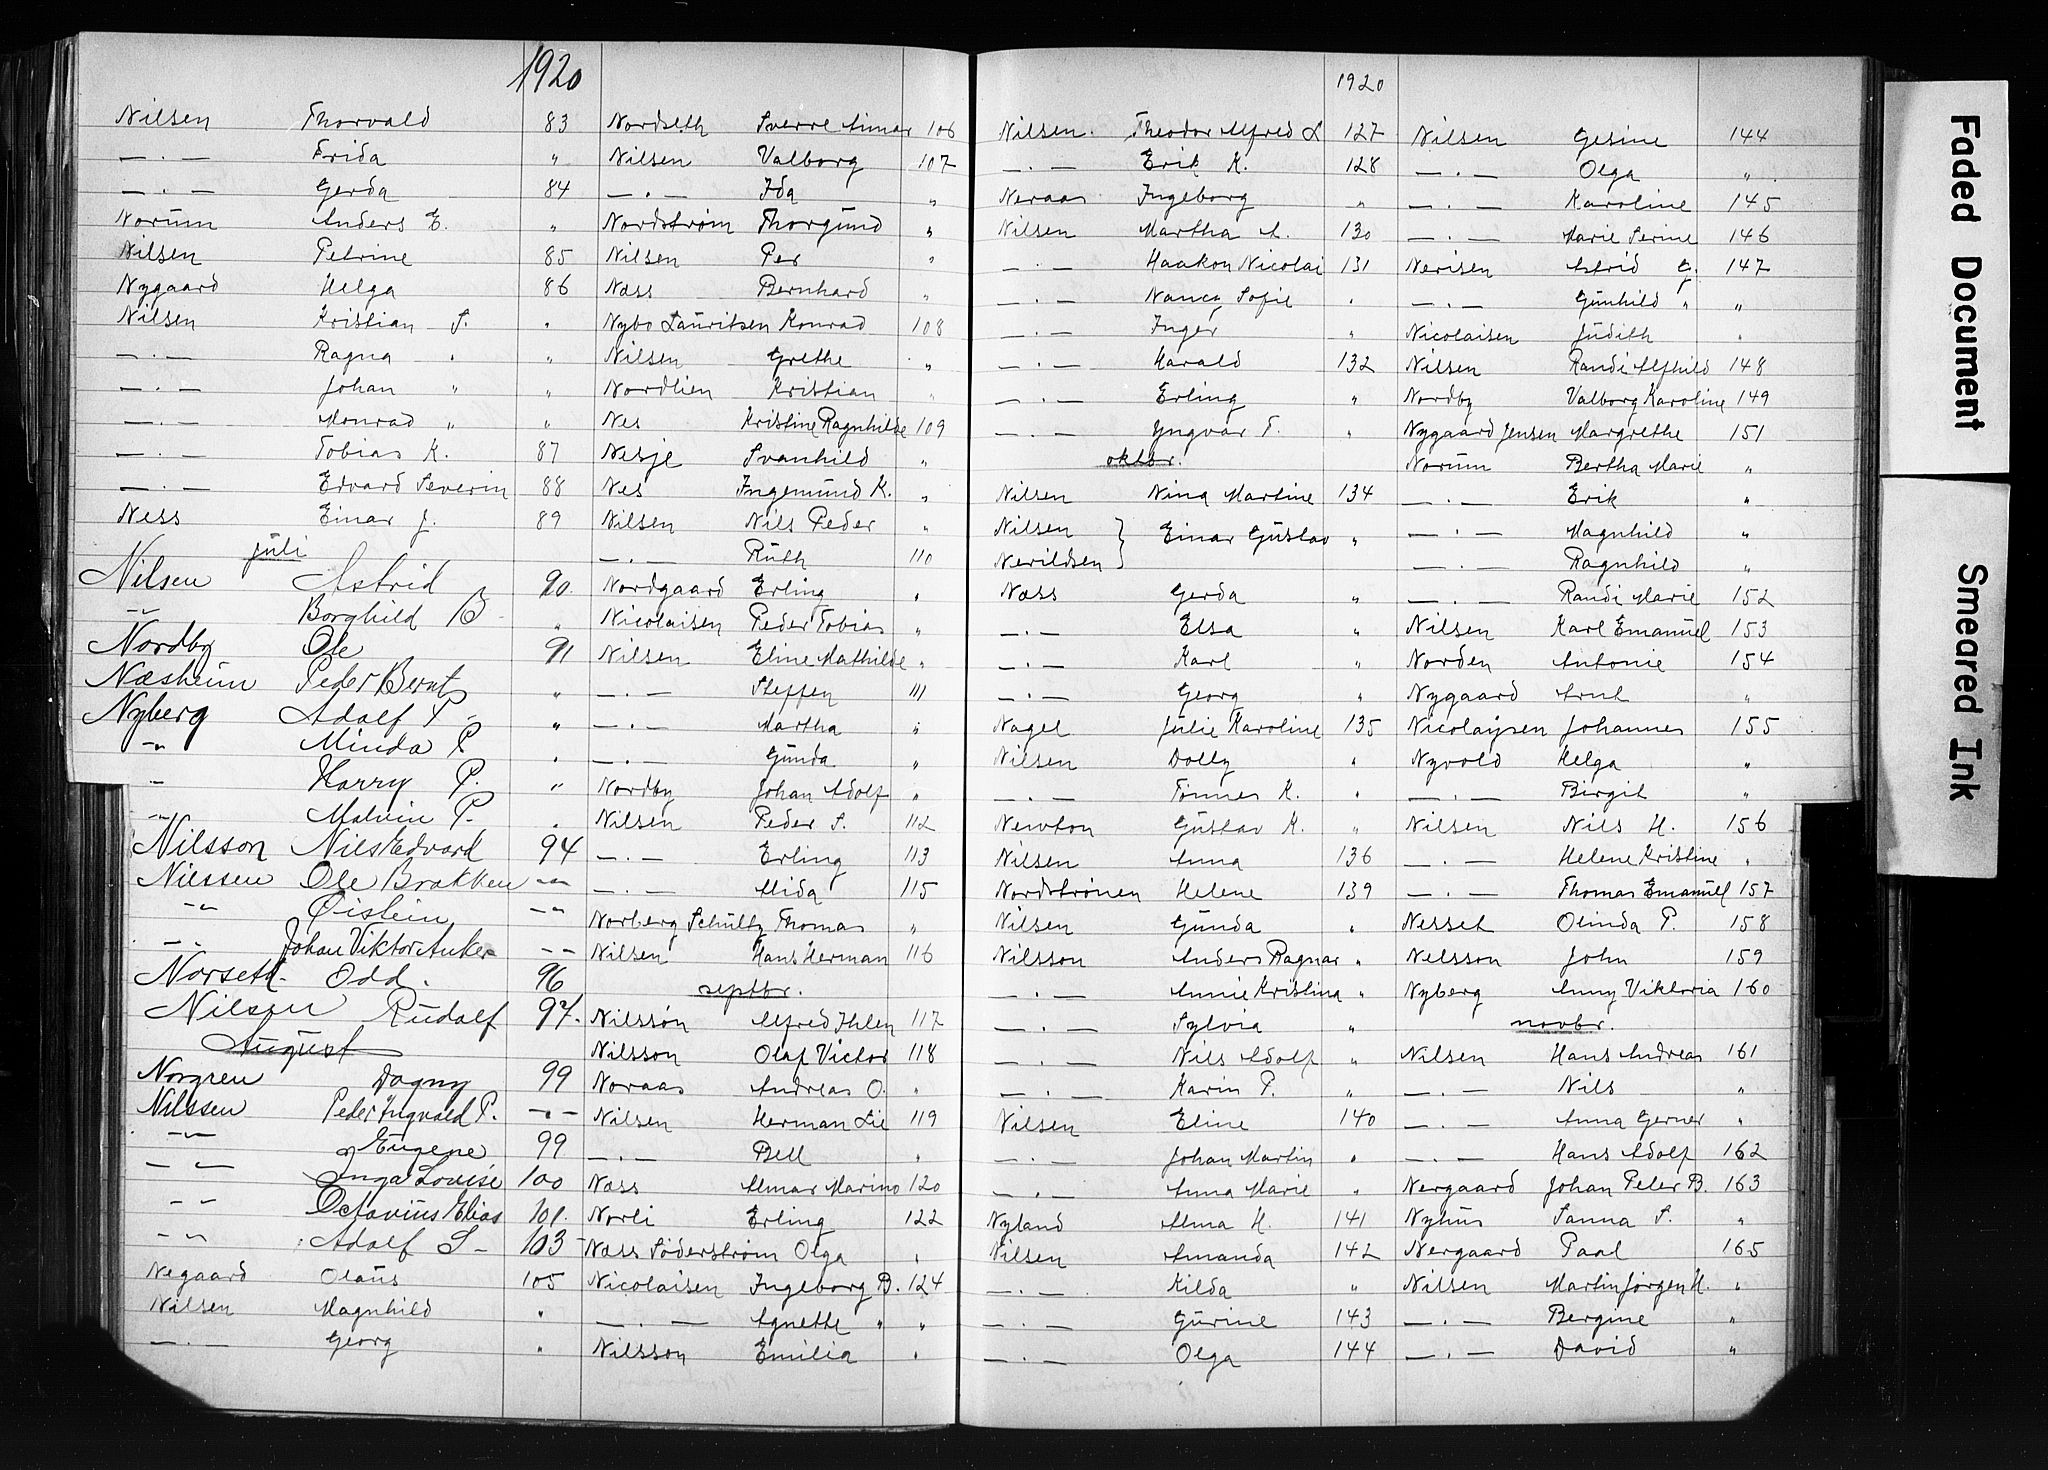 1920
Nilsen Thorvald 83
— . — Frida "
— . — Gerda 84
Norum Anders E. "
Nilsen Petrine 85
Nygaard Helga 86
Nilsen Kristian S. "
— . — Ragna " "
— . — Johan " "
— . — Monrad " "
— . — Tobias K. 87
— . — Edvard Severin 88
Ness Einar J. 89
juli
Nilsen Astrid 90
" Borghild B "
Nordby Ole 91
Næsheim Peder Bernt "
Nyberg Adolf P. "
" Minda P "
" Harry P. "
" Malvin P. "
Nilsson Nils Edvard 94
Nilssen Ole Brakken "
" Øistein "
" Johan Viktor Anker "
Norseth Odd. 96
Nilsen Rudolf 97.
August
Norgren Dagny 99
Nilssen Peder Ingvald P. "
" Eugene 99
" Inga Lovise 100
" Octavius Elias 101.
" Adolf S 103
Negaard Olaus 105
Nilsen Magnhild "
— . — Georg "
Nordseth Sverre Aimar 106
Nilsen Valborg 107
— . — Ida "
Nordstrøm Thorgund "
Nilsen Per "
Næss Bernhard "
Nybo Lauritsen Konrad 108
Nilsen Grethe "
Nordlien Kristian "
Nes Kristine Ragnhilde 109
Nesje Svanhild "
Nes Ingemund K. "
Nilsen Nils Peder "
— . — Ruth 110
Nordgaard Erling "
Nicolaisen Peder Tobias "
Nilsen Eline Mathilde "
— . — Steffen 111
— . — Martha "
— . — Gunda "
Nordby Johan Adolf "
Nilsen Peder S. 112
— . — Erling 113
— . — Alida 115
Norberg Schultz Thomas "
Nilsen Hans Herman 116
septbr.
Nilssøn Alfred Ihlen 117
Nilsson Olaf Victor 118
Noraas Andreas O. "
Nilsen Herman Lie 119
— . — Bell "
Næss Almar Marino 120
Norli Erling 122
Næss Söderstrøm Olga "
Nicolaisen Ingeborg B. 124
— . — Agnethe " "
Nilsson Emilia "
1920
Nilsen Theodor Alfred L 127
— . — Erik K. 128
Neraas Ingeborg "
Nilsen Martha A. 130
— . — Haakon Nicolai 131
— . — Nancy Sofie "
— . — Inger "
— . — Harald 132
— . — Erling "
— . — Yngvar T. "
oktbr.
Nilsen Nina Martine 134
Nilsen } Einar Gustav "
Nerildsen }
Næss Gerda "
— . — Elsa "
— . — Karl "
— . — Georg "
Nagel Julie Karoline 135
Nilsen Dolly "
— . — Tønnes K. "
Newton Gustav K. "
Nilsen Anna 136
Nordstrønen Helene 139
Nilsen Gunda "
Nilsson Anders Ragnar "
— . — Annie Kristina "
— . — Sylvia "
— . — Nils Adolf "
— . — Karin P. "
Nilsen Eline 140
— . — Johan Martin "
— . — Anna Marie "
Nyland Alma H. 141
Nilsen Amanda 142
— . — Kilda "
— . — Gurine 143
— . — Olga 144
Nilsen Gesine 144
— . — Olga "
— . — Karoline 145
— . — Marie Serine 146
Nerisen Astrid G. 147
— . — Gunhild " "
Nicolaisen Judith "
Nilsen Randi Alfhild 148
Nordby Valborg Karoline 149
Nygaard Jensen Margrethe 151
Norum Bertha Marie "
— . — Erik "
— . — Magnhild "
— . — Ragnhild "
— . — Randi Marie 152
Nilsen Karl Emanuel 153
Norden Antonie 154
Nygaard Arnt "
Nicolaysen Johannes 155
Nyvold Helga "
— . — Birgit "
Nilsen Nils H. 156
— . — Helene Kristine "
— . — Thomas Emanuel 157
Nesset Olinda P. 158
Nelsson John 159
Nyberg Anny Viktoria 160
novbr.
Nilsen Hans Andreas 161
— . — Nils "
— . — Anna Gerner "
— . — Hans Adolf 162
Nergaard Johan Peter B. 163
Nyhus Sanna S. "
Nergaard Paal 165
Nilsen Martin Jørgen H. "
— . — Bergine "
— . — David "
Faded Document
Smeared Ink